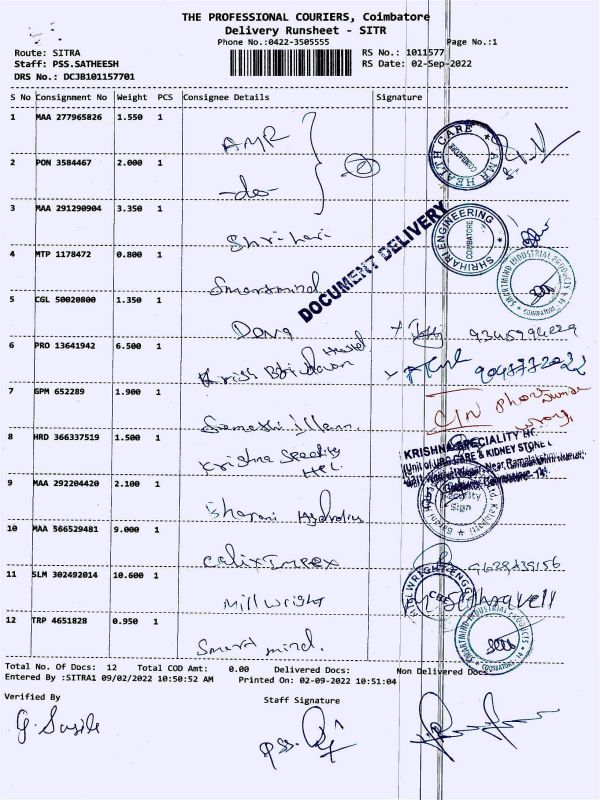 THE PROFESSIONAL COURIERS, Coimbatore
Delivery Runsheet - SITR
Phone No.:0422-3505555
Page No.:1
Route: SITRA
RS No.: 1011577
Staff: PSS.SATHEESH
RS Date: 02-Sep-2022
DRS No.: DCJB101157701
S No Consignment No Weight PCS Consignee Details Signature
1 MAA 277965826 1.550 1
AMR
AMR HEALTH CARE
COIMBATORE
2 PON 3584467 2.000 1
-do-
3 MAA 291290904 3.350 1
Shrihari
SHRIHARI ENGINEERING
COIMBATORE
DOCUMENT DELIVERY
4 MTP 1178472 0.800 1
Smartmind
SMARTMIND INDUSTRIAL PRODUCTS
COIMBATORE
5 CGL 50020800 1.350 1
6 PRO 13641942 6.500 1
Hostel
7 GPM 652289 1.900 1
phone
wrong
8 HRD 366337519 1.500 1
Krishna Speciality
KRISHNA SPECIALITY
(Unit of URO CARE & KIDNEY STONE
9 MAA 292204420 2.100 1
Bharani Hydraulics
Security
Sign
10 MAA 566529481 9.000 1
Calix Impex
11 SLM 302492014 10.600 1
Mill Wright
12 TRP 4651828 0.950 1
Smart mind.
SMARTMIND INDUSTRIAL PRODUCTS
COIMBATORE
Total No. Of Docs: 12 Total COD Amt: 0.00 Delivered Docs: Non Delivered Docs:
Entered By :SITRA1 09/02/2022 10:50:52 AM Printed On: 02-09-2022 10:51:04
Verified By
Staff Signature